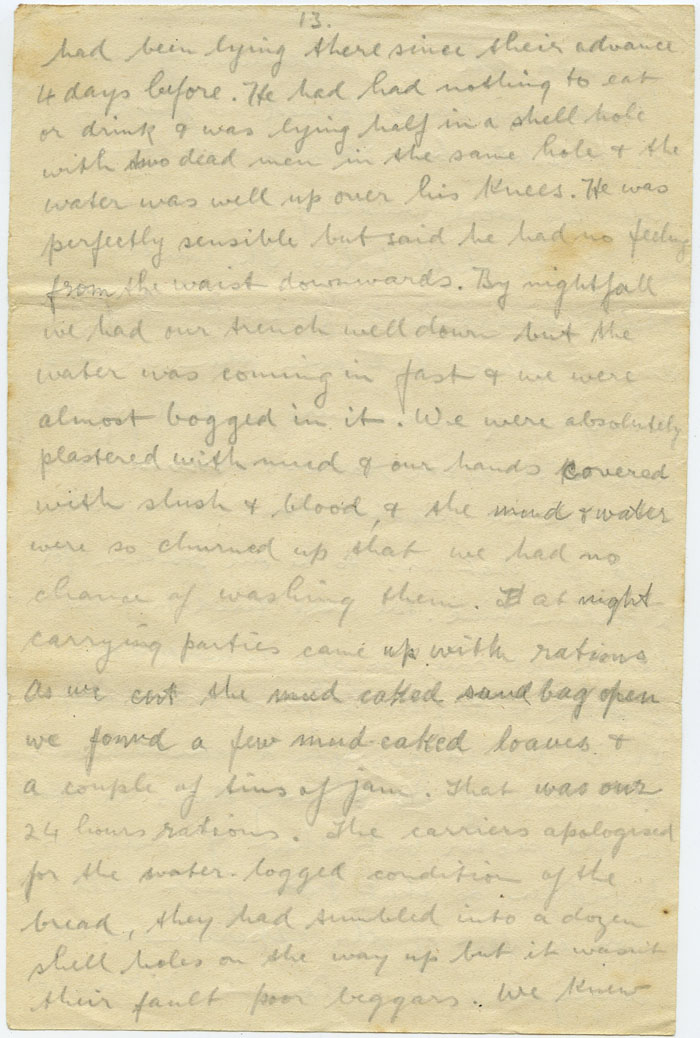 13.
had been lying there since their advance
4 days before. He had had nothing to eat
or drink & was lying half in a shell hole
with two dead men in the same hole & the
water was well up over his knees. He was
perfectly sensible but said he had no feeling
from the waist downwards. By nightfall
we had our trench well down but the
water was coming in fast & we were
almost bogged in it. We were absolutely
plastered with mud & our hands covered
with slush & blood, & the mud & water
were so churned up that we had no
chance of washing them. at night
carrying parties came up with rations
As we cut the mud caked sand bag open
we found a few mud-caked loaves &
a couple of tins of jam. That was our
24 hours rations. The carriers apologised
for the water-logged condition of the
bread, they had tumbled into a dozen
shell holes on the way up but it wasn't
their fault poor beggars. We knew